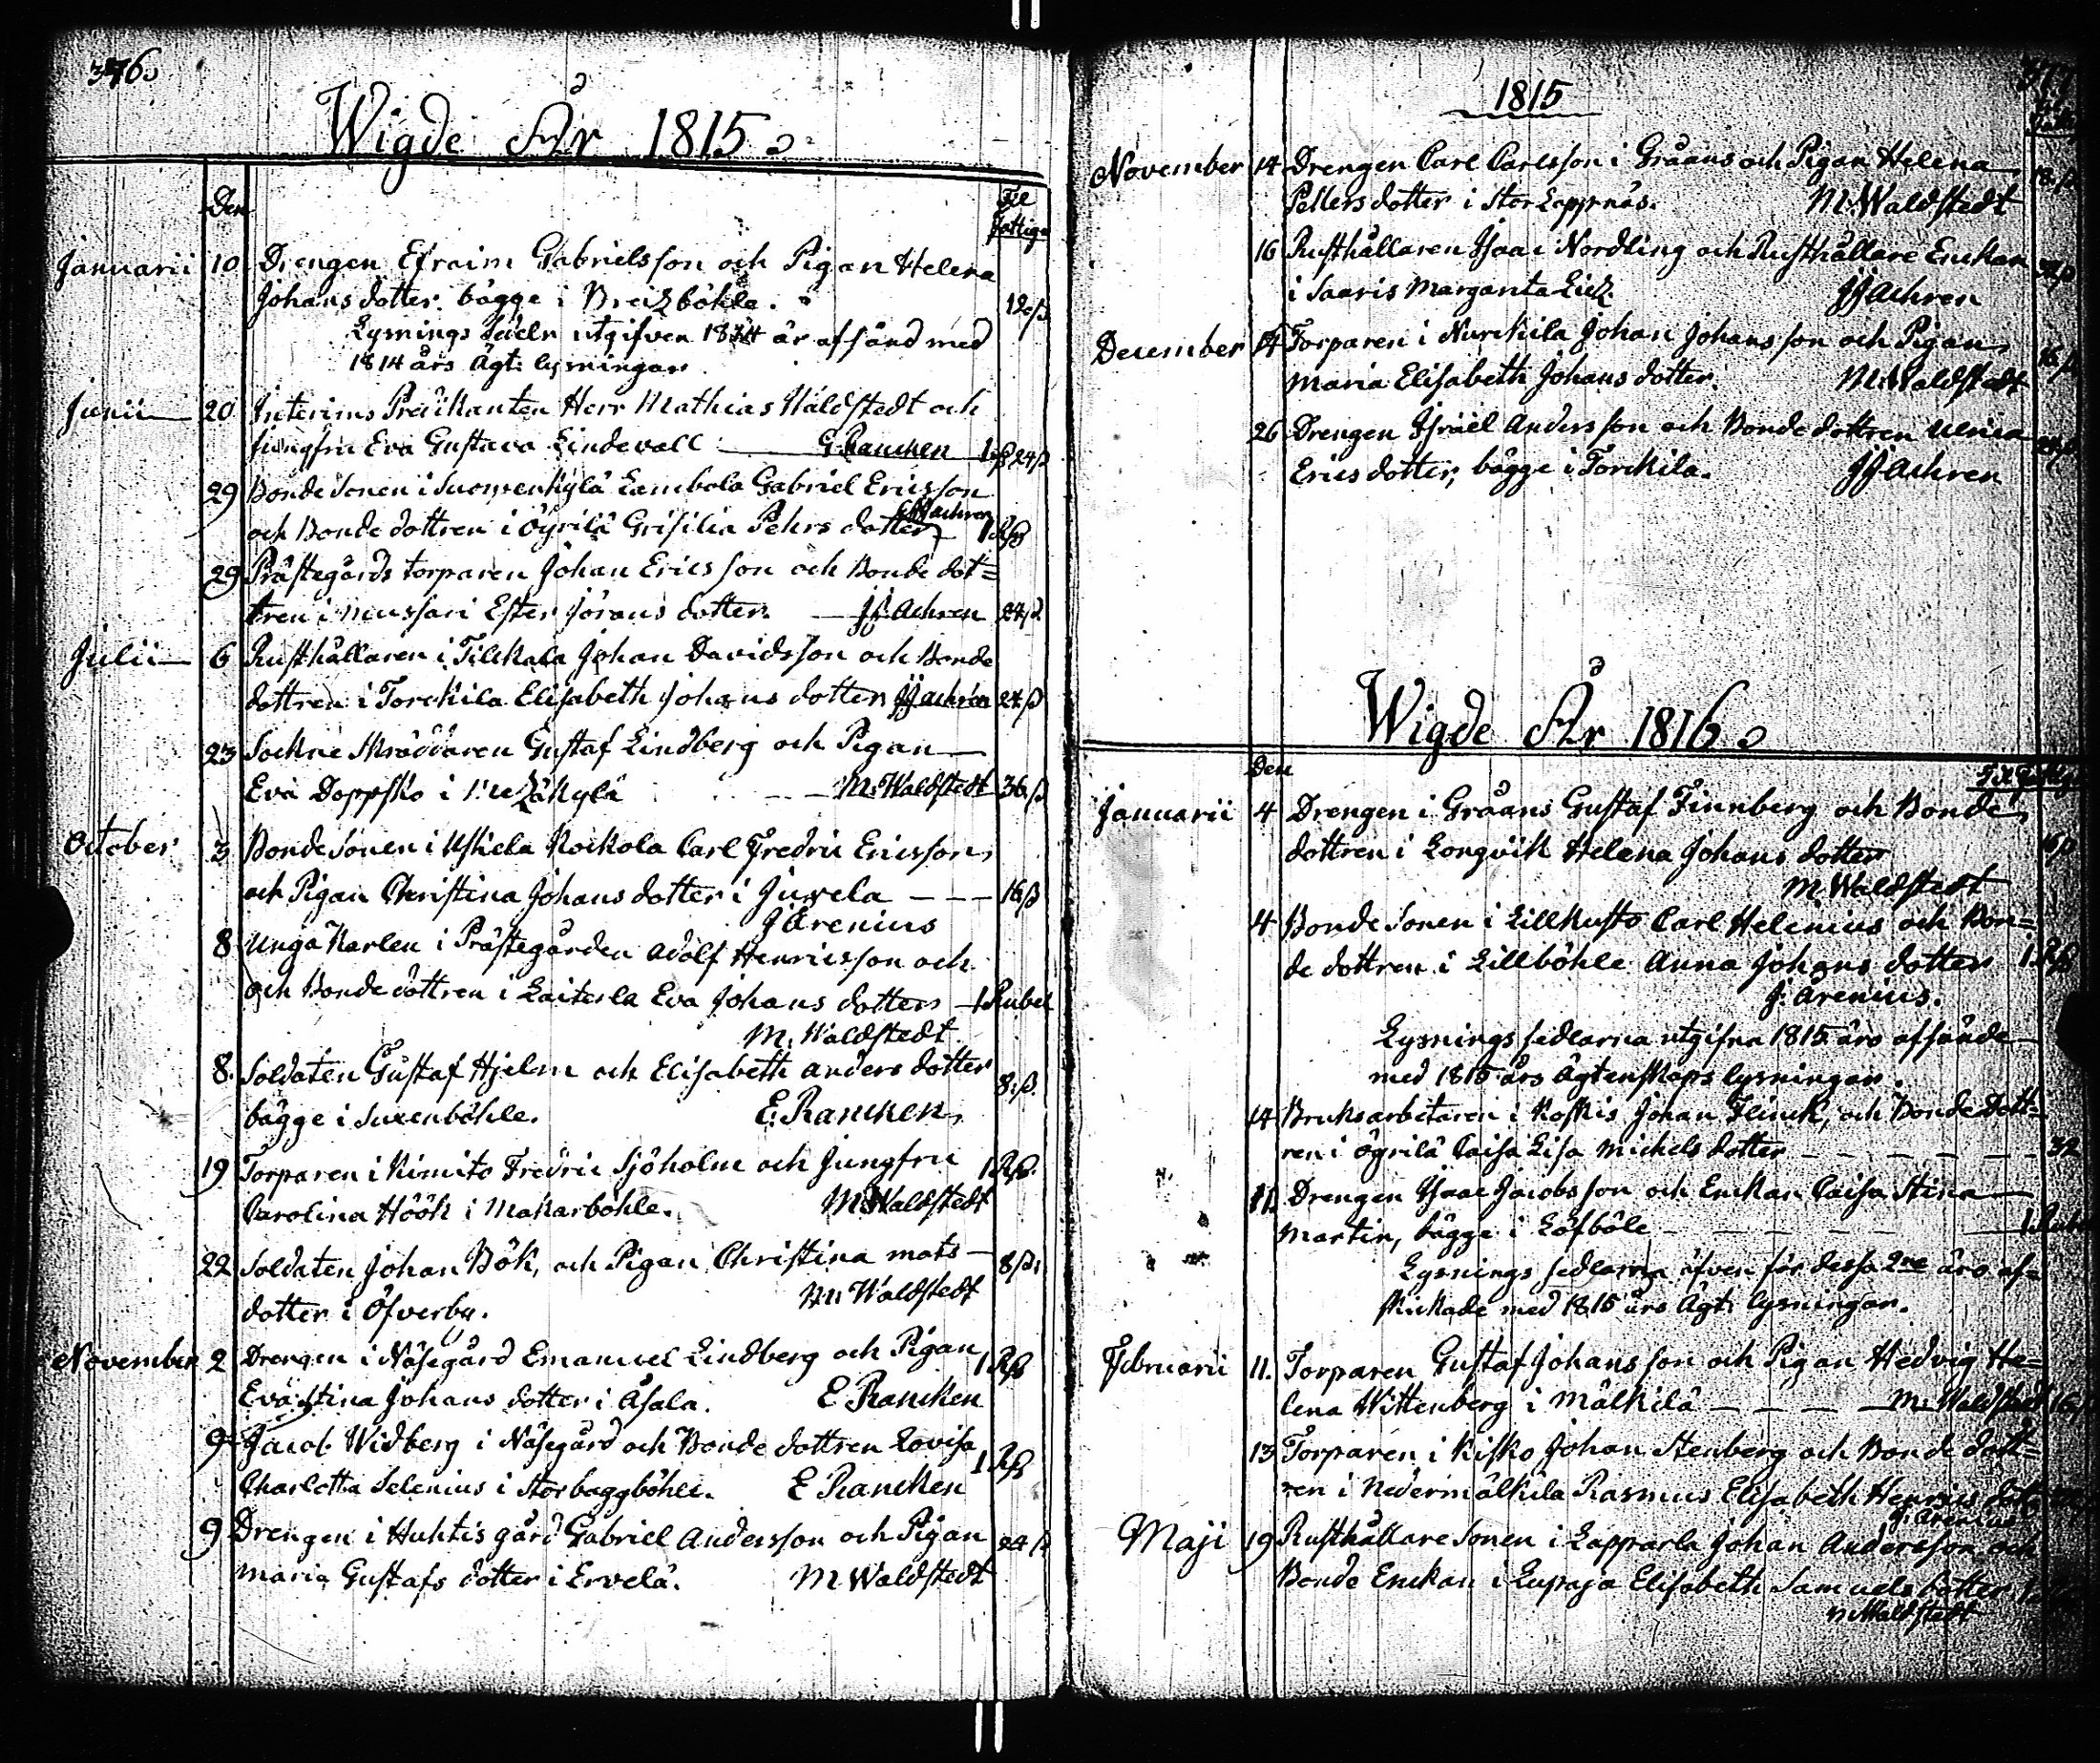 376.
Wigde År 1815.
Den
Till
fattiga
Januarii 10 Drengen Efraim Gabrielsson och Pigan Helena
Johans dotter bägge i Breizböhle. 12 ß
Lysnings Sedeln utgifven 1814 är afsänd med
1814 års Ägt: lysningar
Junii 20 Interims Predikanten Herr Mathias Waldstedt och
Jungfru Eva Gustava Lindevall G Rancken 1 24 ß
29 Bonde Sonen i Suomenkylä Lambola Gabriel Ericsson
JJ Achren
och Bonde dottren i Ögrilä Grisilia Pehrs dotter 1 R
29 Prästegårds torparen Johan Ericsson och Bonde dot=
tren i Mussari Ester Jörans dotter. JJ Achren 24 ß
Julii 6 Rusthållaren i Tilkala Johan Davidsson och Bonde
dottren i Torckila Elisabeth Johans dotter JJ Achrén 24 ß
23 Sockne Skräddaren Gustaf Lindberg och Pigan
Eva Doppsko i M: Waldstedt 36 ß
October 3 Bonde Sonen i Uskela Kockola Carl Fredric Ericsson
och Pigan Christina Johans dotter i Juvela — — — 16 ß
J Arenius
8 Unga Karlen i Prästegården Adolf Henricsson och
och Bonde dottren i Laiterla Eva Johans dotter — 1 Rubel
M. Waldstedt
8. Soldaten Gustaf Hjelm och Elisabeth Anders dotter 8 ß.
bägge i Suxenböhle. E. Rancken.
19 Torparen i Kimito Fredric Sjöholm och Jungfru 1 R
Carolina Höök i Makarböhle. M Waldstedt
22 Soldaten Johan Bök, och Pigan Christina Mats — 8 ß.
dotter i Öfverby. M. Waldstedt
November 2 Drengen i Näsegård Emanuel Lindberg och Pigan 1 R
Eva Stina Johans dotter i Åsala. E Rancken
9 Jacob Widberg i Näsegård och Bonde dottren Lovisa
Charlotta Selenius i Storbaggböhle. E Rancken 1 R
9 Drengen i Huhtis gård Gabriel Andersson och Pigan 24 ß
Maria Gustafs dotter i Ervelä. M Waldstedt
377
1815
November 14 Drengen Carl Carlsson i Gråans och Pigan Helena
Pettersdotter i Stor Lappnäs. M. Waldstedt
16 Rusthållaren Isaac Nordling och Rusthållare Enckan
i Saaris Margareta Lick. JJ Achren
December 14 Torparen i Nurckila Johan Johansson och Pigan
Maria Elisabeth Johans dotter. M. Waldstedt
26 Drengen Israel Andersson och Bonde dottren Ulrica
Ericsdotter, bägge i Torckila. JJ Achren
Wigde År 1816.
Den
Januarii 4 Drengen i Gråans Gustaf Finnberg och Bonde
dottren i Longvik Helena Johans dotter
M Waldstedt
4 Bonde Sonen i Lillkusto Carl Helenius och Bon=
de dottren i Lillböhle Anna Johans dotter 1 R
J. Arenius.
Lysnings sedlarna utgifna 1815 äro afsände
med 1815 års Ägtenskaps lysningar.
14 Bruksarbetaren i Koskis Johan Flinck, och Bonde Dott=
ren i Ögrilä Caisa Lisa Michels dotter — — — — — 32
11. Drengen Isaac Jacobsson och Enckan Caisa Stina —
Martin, bägge i Löfböle — — — — 1 Rub
Lysnings sedlarna äfven för dessa 2ne äro af=
skickade med 1815 års Ägt: lysningar.
Februarii 11. Torparen Gustaf Johansson och Pigan Hedvig He=
lena Wittenberg i Mälkilä — — — — M. Waldstedt 16
13 Torparen i Kisko Johan Stenberg och Bonde dott=
ren i Nedermälkilä Rasmus Elisabeth Henrics dot
J: Arenius
Maji 19 Rusthållare Sonen i Lapparla Johan Andersson och
Bonde Enckan i Lupaja Elisabeth Samuels dotter
M Waldstedt